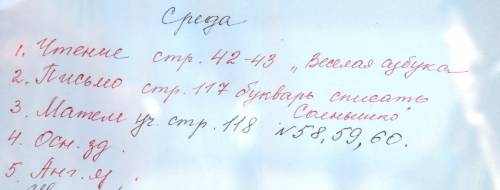 Среда
1. Чтение стр. 42-43 „Веселая азбука
2. Письмо стр. 117 букварь списать
„Солнышко"
3. Матем уч. стр. 118 №58, 59, 60.
4. Осн. зд.
5. Анг. яз.